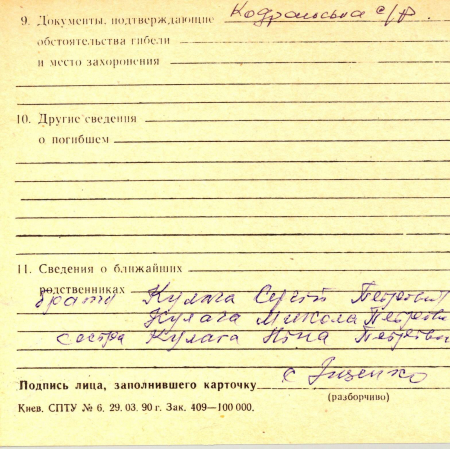 9. Документы, подтверждающие Кодральська с/р.
обстоятельства гибели
и место захоронения
10. Другие сведения
о погибшем
11. Сведения о ближайших
родственниках
брати Кулага Сергій Петрович
Кулага Микола Петрови
сестра Кулага Ніна Петрівн
Подпись лица, заполнившего карточку
(разборчиво)
Киев. СПТУ № 6. 29. 03. 90 г. Зак. 409—100 000.